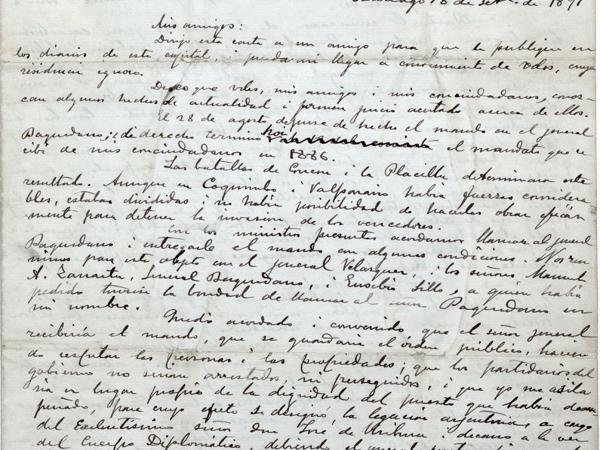 Santiago 18 de Set. de 1891
Mis amigos:
Dirijo esta carta a un amigo para que la publique en
los diarios de esta capital, i pueda asi llegar a conocimiento de Vdes, cuya
residencia ignoro.
Deseo que Vdes, mis amigos i mis conciudadanos, conoz-
can algunos hechos de actualidad i formen juicio acertado acerca de ellos.
El 28 de agosto depuse de hecho el mando en el jeneral
Baquedano, i de derecho termina hoi el mandato que re-
cibí de mis conciudadanos en 1886.
Las batallas de Concon i la Placilla determinaron este
resultado. Aunque en Coquimbo i Valparaiso habia fuerzas considera-
bles, estaban divididas i no habia posibilidad de hacerlas obrar eficaz-
mente para detener la invasion de los vencedores.
Con los ministros presentes acordamos llamar al jeneral
Baquedano i entregarle el mando con algunas condiciones. Nos reu-
nimos para este objeto con el jeneral Velasquez i los señores Manuel
A. Zañartu, jeneral Baquedano, i Eusebio Lillo, a quien habia
pedido tuviera la bondad de llamar al señor Baquedano en
mi nombre.
Quedó acordado i convenido, que el señor jeneral
recibiria el mando, que se guardaria el órden público, hacien-
do respetar las personas i las propiedades; que los partidarios del
gobierno no serian arrestados, ni perseguidos, i que yo me asila-
ria en lugar propio de la dignidad del puesto que habia desem-
peñado, para cuyo efecto se designó la legacion arjentina, a cargo
del Exelentisimo señor don José de Uriburu i decano a la vez
del Cuerpo Diplomático, debiendo el jeneral